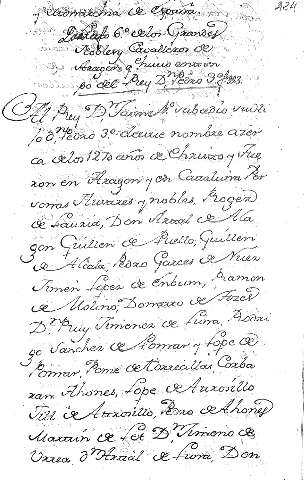 224
y
de España
6º de los Grandes
Nobles y Cavalleros de
Aragon q huuo en tiem
po del Rey Dn Pedro 3º
Al Rey Dn Jaime 1º subcedio su hi
jo Dn Pedro 3º de este nombre a cer
ca de los 1270 años de Christo y fue
ron en Aragon y en Cataluña Per
sonas Illustres y nobles, Roger
de Lauria, Don Artal de Ala
gon Guillen de Puello, Guillen
de Alcala, Pedro Garces de Nuez
Ximen Lopez de Enbum, Ramon
de Molino, de Fozes
Dn Ruy Ximenez de Luna, Rodri
go Sanchez de Pomar y Lope de
Pomar, Pone de Torrecillas, Corba
ran Ahones, Lope de Atrosillo
Gil de Atrosillo, Pedro de Ahones
Martin de Let Dn Ximeno de
Urrea Dn Artal de Luna, Don